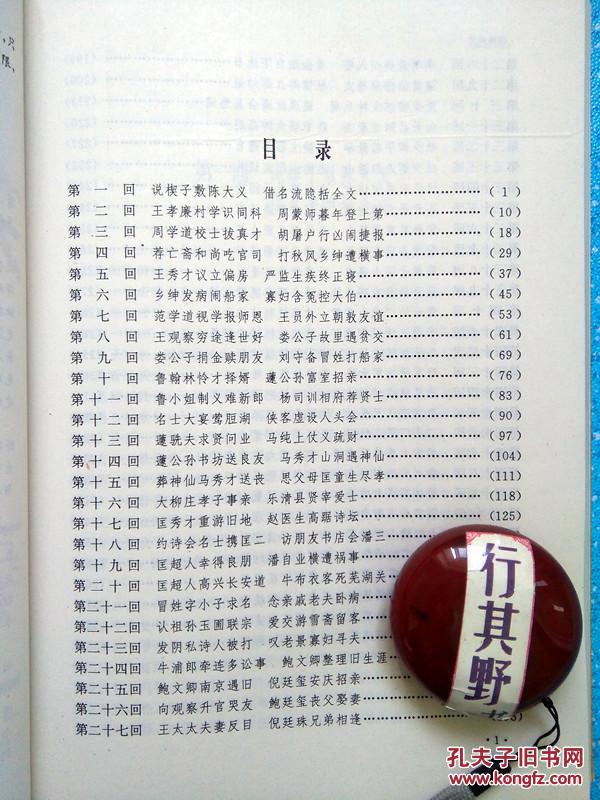 目 录
第 一 回 说楔子敷陈大义 借名流隐括全文………………( 1 )
第 二 回 王孝廉村学识同科 周蒙师暮年登上第…………(10)
第 三 回 周学道校士拔真才 胡屠户行凶闹捷报…………(18)
第 四 回 荐亡斋和尚吃官司 打秋风乡绅遭横事…………(29)
第 五 回 王秀才议立偏房 严监生疾终正寝………………(37)
第 六 回 乡绅发病闹船家 寡妇含冤控大伯………………(45)
第 七 回 范学道视学报师恩 王员外立朝敦友谊…………(53)
第 八 回 王观察穷途逢世好 娄公子故里遇贫交…………(61)
第 九 回 娄公子捐金赎朋友 刘守备冒姓打船家…………(69)
第 十 回 鲁翰林怜才择婿 蘧公孙富室招亲………………(76)
第十一回 鲁小姐制义难新郎 杨司训相府荐贤士…………(83)
第十二回 名士大宴莺脰湖 侠客虚设人头会………………(90)
第十三回 蘧駪夫求贤问业 马纯上仗义疏财………………(97)
第十四回 蘧公孙书坊送良友 马秀才山洞遇神仙…………(104)
第十五回 葬神仙马秀才送丧 思父母匡童生尽孝…………(111)
第十六回 大柳庄孝子事亲 乐清县贤宰爱士………………(118)
第十七回 匡秀才重游旧地 赵医生高踞诗坛………………(125)
第十八回 约诗会名士携匡二 访朋友书店会潘三
第十九回 匡超人幸得良朋 潘自业横遭祸事
第二十回 匡超人高兴长安道 牛布衣客死芜湖关
第二十一回 冒姓字小子求名 念亲戚老夫卧病
第二十二回 认祖孙玉圃联宗 爱交游雪斋留客
第二十三回 发阴私诗人被打 叹老景寡妇寻夫
第二十四回 牛浦郎牵连多讼事 鲍文卿整理旧生涯
第二十五回 鲍文卿南京遇旧 倪廷玺安庆招亲
第二十六回 向观察升官哭友 鲍廷玺丧父娶妻
第二十七回 王太太夫妻反目 倪廷珠兄弟相逢
· 1 ·
行其野
孔夫子旧书网
kongfz.com